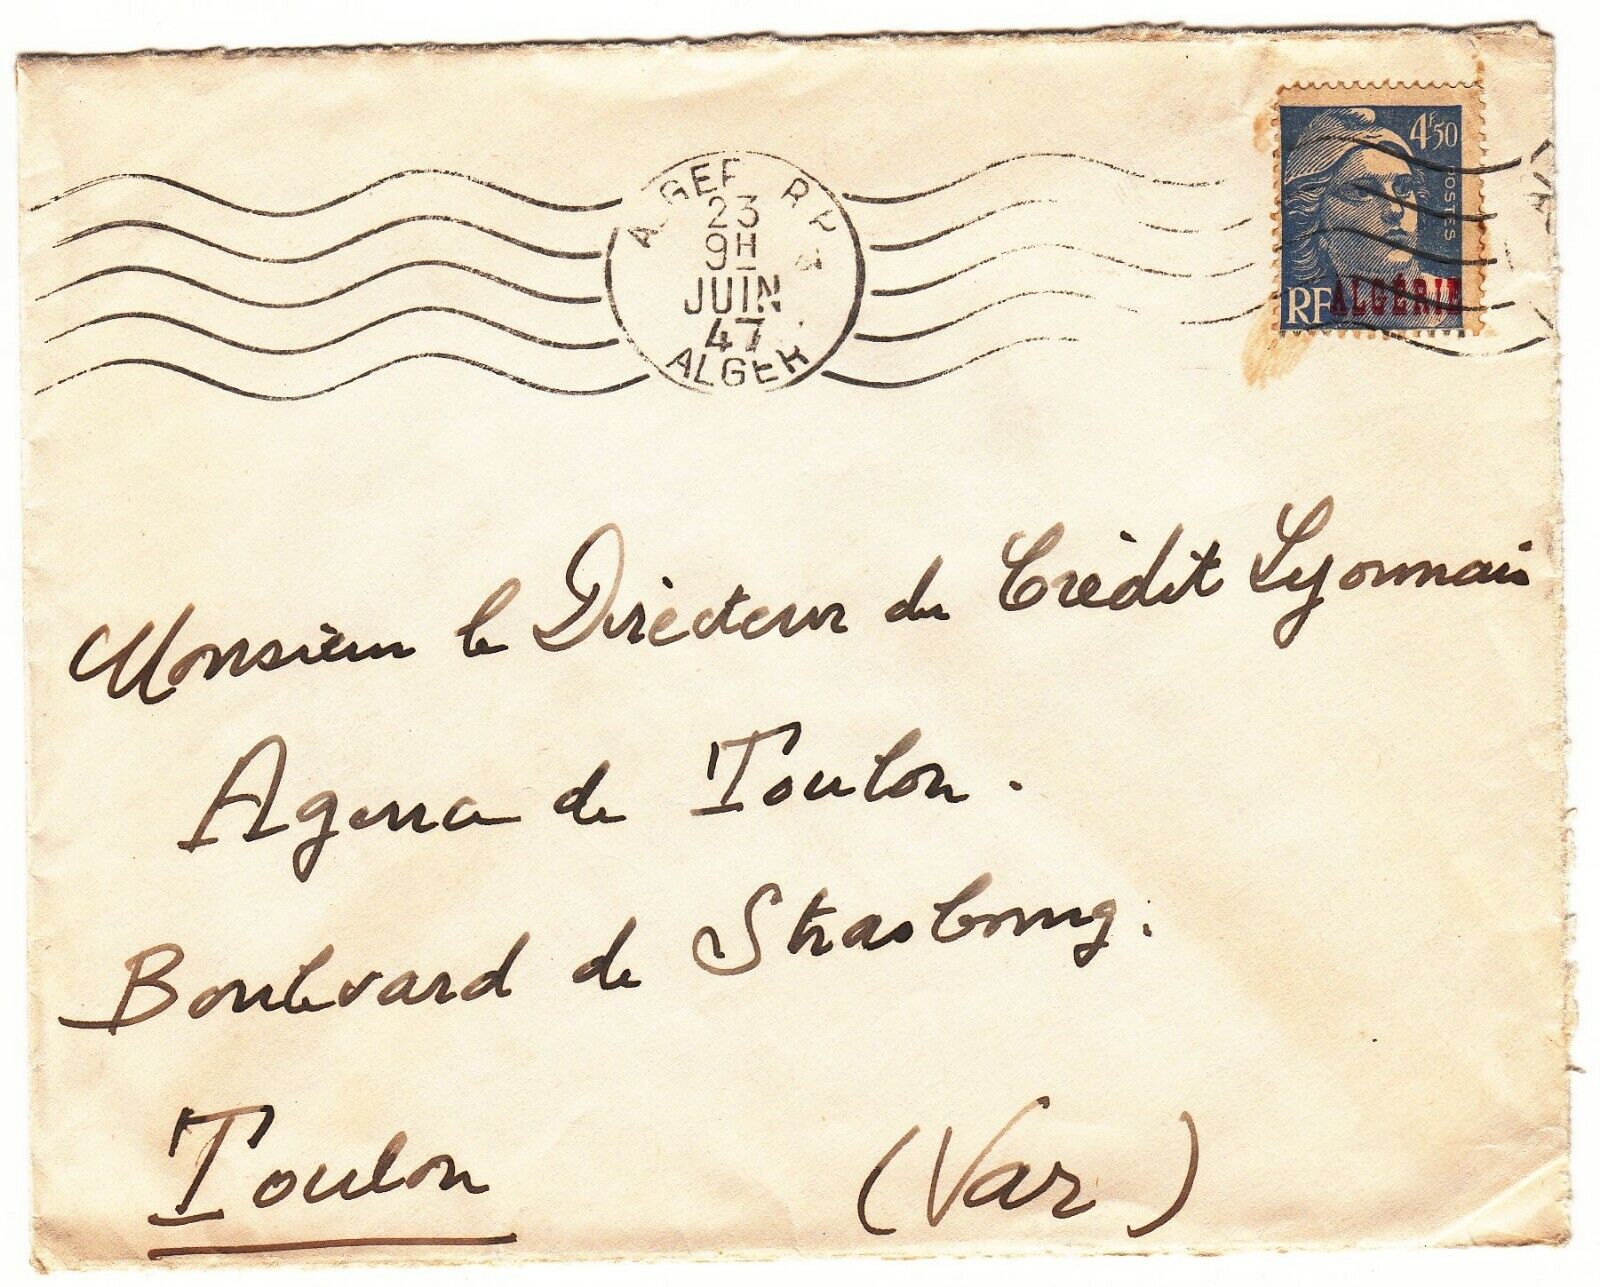 ALGER R.P.
23
9H
JUIN
47
ALGER
4F50
POSTES
RF ALGÉRIE
Monsieur le Directeur du Crédit Lyonnais
Agence de Toulon.
Boulevard de Strasbourg.
Toulon (Var)